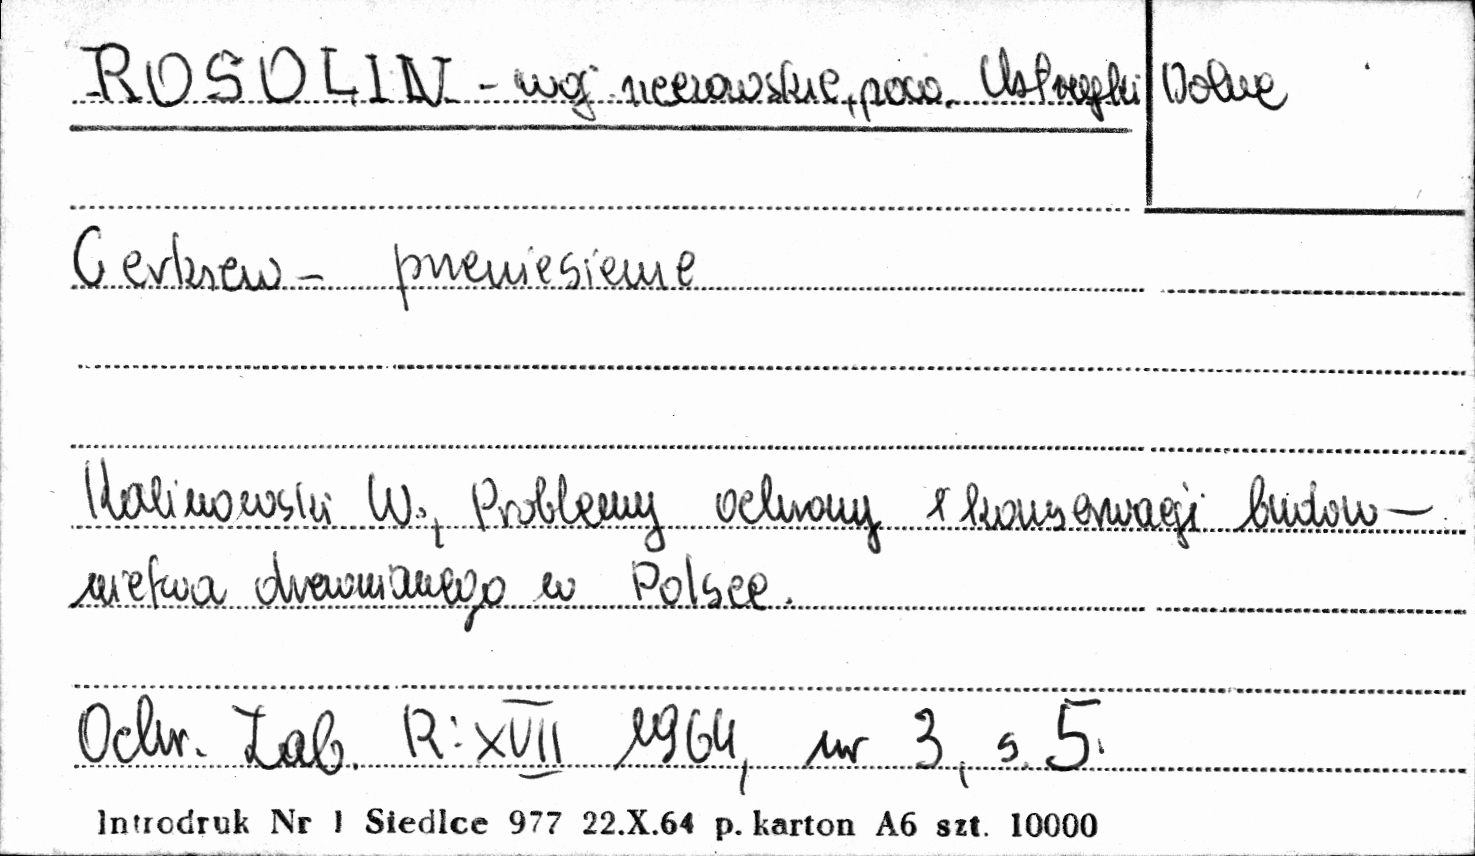 ROSOLIN - woj. rzeszowskie, pow. Ustrzyki Dolne
Cerkiew - przeniesienie
Kalinowski W., Problemy ochrony i konserwacji budow-
nictwa drewnianego w Polsce.
Ochr. Zab. R: XVII 1964, nr 3, s. 5.
Introdruk Nr 1 Siedlce 977 22.X.64 p. karton A6 szt. 10000